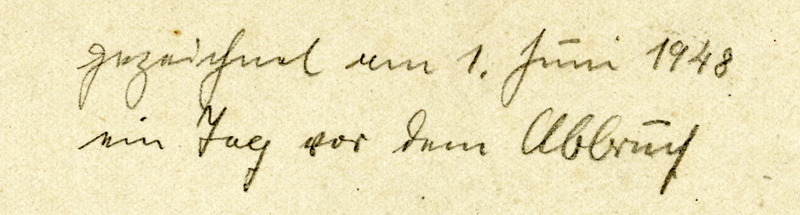 gezeichnet am 1. Juni 1948
ein Tag vor dem Abbruch